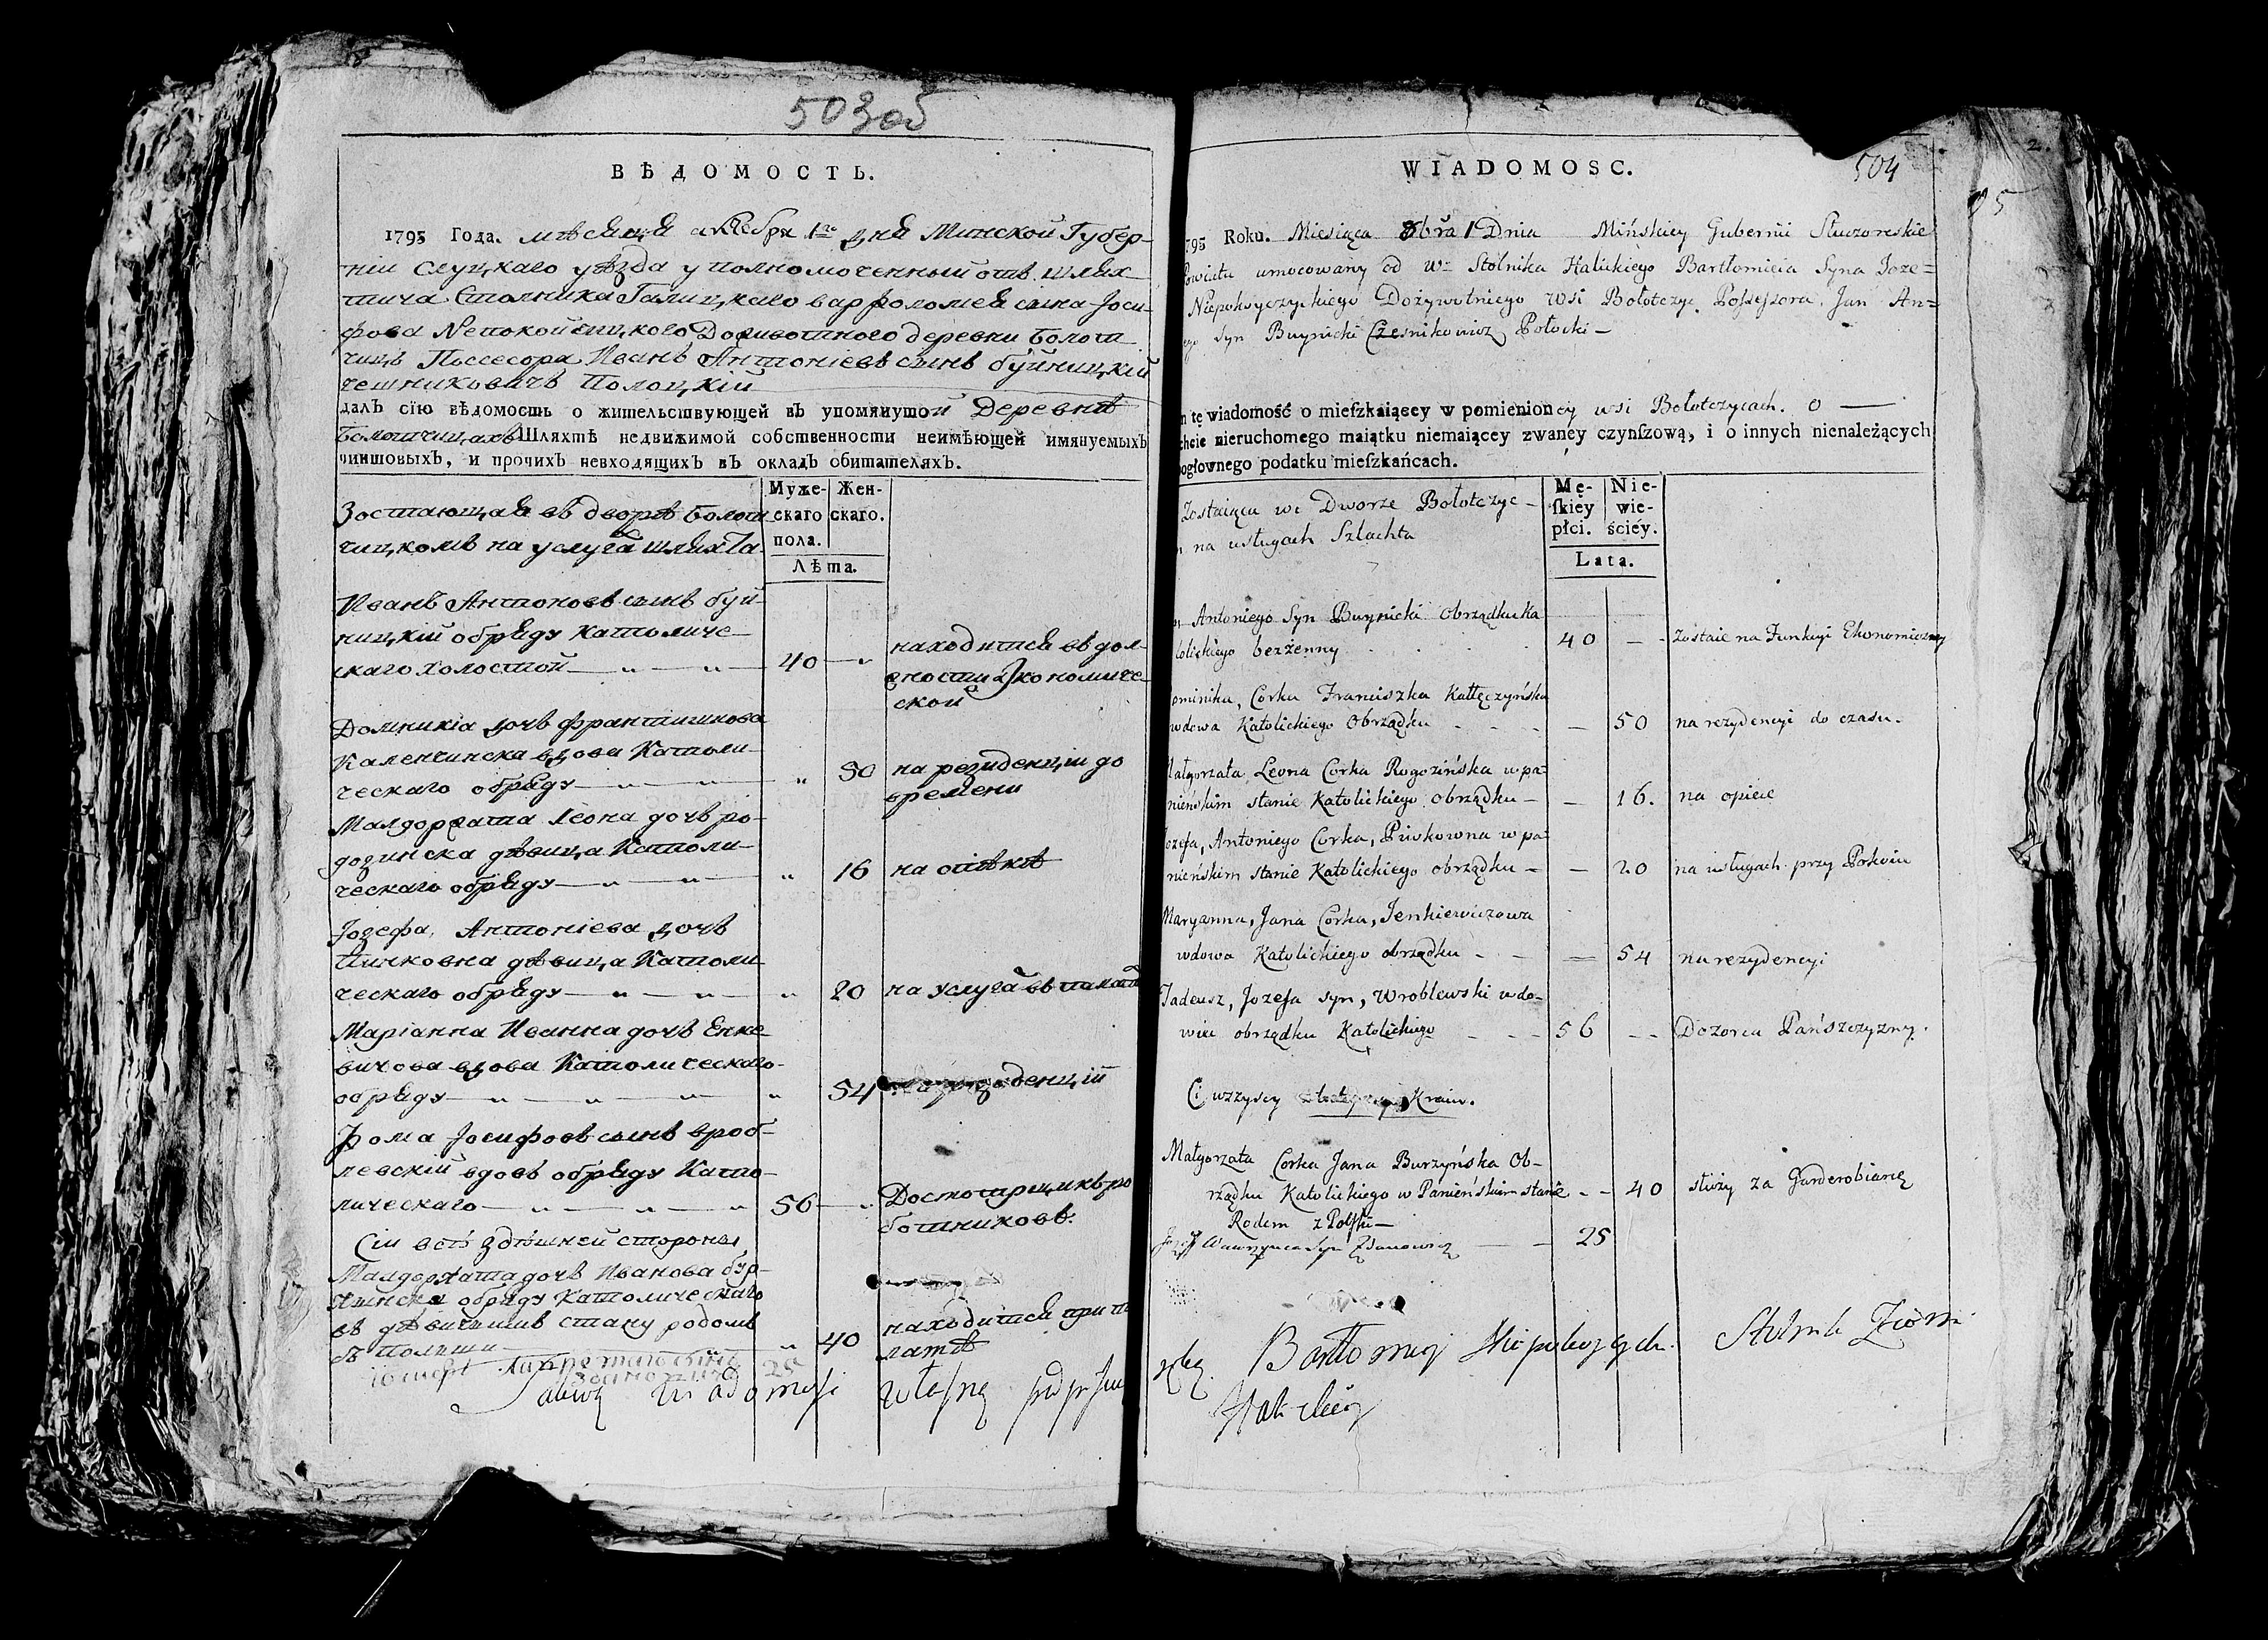 503об
ВѢДОМОСТЬ.
1795 Года. мѣсяца октебря 1го дня Минской Губер-
ніи Слуцкаго уѣзда уполномоченный отъ шлях-
тича Столника Галицкаго варфоломея сына Іоси-
фова Nепокойчицкого Доживотного деревни Болот
чицъ Поссесора Иванъ Антоніевъ сынъ буйницкій
чешниковичъ Полоцкій
далъ сію вѣдомость о жительствующей въ упомянутой Деревнѣ
Болотчицахъ Шляхтѣ недвижимой собственности неимѣющей имянуемыхъ
чиншовыхъ, и прочихъ невходящихъ въ окладъ обитателяхъ.
Муже- Жен-
скаго скаго.
пола.
Лѣта.
Зостающая въ дворѣ Болот
чицкомъ на услугахъ шляхта
Иванъ Антоновъ сынъ буй-
ницкій обряду Католиче-
скаго холостой — 40 — находится въ дол-
жности Экономиче-
ской
Домникіа дочь франтишкова
Каленчинска вдова Католи-
ческаго обряду — 50 на резиденціи до
времени
Малгоржата Леона дочь ро-
гозинска дѣвица Католи-
ческаго обряду — 16 на опѣкѣ
Іозефа, Антоніева дочь
Пичковна дѣвица Католи
ческаго обряду — 20 на услугахъ въ
Маріанна Иванна дочь Енке
вичова вдова Католическаго-
обряду — 54 резиденціи
Фома Іосифовъ сынъ вроб-
левскій вдовъ обряду Като-
лическаго — 56 — Досмотрщикъ ро
ботниковъ.
Сіи всѣ здѣшней стороны
Малгоржата дочь Иванова бур-
жинска обряду Католическаго
въ дѣвичимъ стану родомъ
съ Полши — 40 находится при п
латѣ
сынъ 25
wiadomosci własną
504
95
2.
WIADOMOSC.
795 Roku. Miesiąca 8bra 1 Dnia Mińskiey Gubernii Słuczoreskie
Powiatu umocowany od W. Stolnika Halickiego Bartłomieia Syna Joze=
Niepokoyczyckiego Dożywotniego wsi Bołotczyc Possessora Jan An=
ego syn Buynicki Cześnikowicz Połocki —
n tę wiadomość o mieszkaiącey w pomienioney wsi Bołotczycach. o —
chcie nieruchomego maiątku niemaiącey zwaney czynszową, i o innych nienależących
ogłownego podatku mieszkańcach.
Mę- Nie-
skiéy wie-
płci. ściéy.
Lata.
Zostaiąca we Dworze Bołotczyc-
m na usługach Szlachta
n Antoniego Syn Buynicki obrządku Ka
tolickiego bezżenny 40 — zostaie na Funkcyi Ekonomiczney
ominika, Corka Franciszka Kallęczyńska
wdowa Katolickiego Obrządku — 50 na rezydencyi do czasu.
Małgorzata Leona Corka Rogozińska w pa=
nieńskim stanie Katolickiego obrządku — — 16. na opiece
ozefa, Antoniego Corka, Piukowna w pa=
nieńskim stanie Katolickiego obrządku — — 20 na usługach przy Pokoiu
Maryanna, Jana Corka, Jenkiewiczowa
wdowa Katolickiego obrządku — — 54 na rezydencyi
Tadeusz, Jozefa syn, Wroblewski wdo-
wiec obrządku Katolickiego — 56 — Dozorca Pańszczyzny.
Ci wszyscy Kraiu.
Małgorzata Corka Jana Burzyńska Ob-
rządku Katolickiego w Panieńskim stanie — 40 służy za Garderobianę
Rodem z Polski —
Jozef Wawrzynca Syn Zdanowicz — 25
Bartłomiey Niepokoyczycki Stolnik Ziem
Halicki